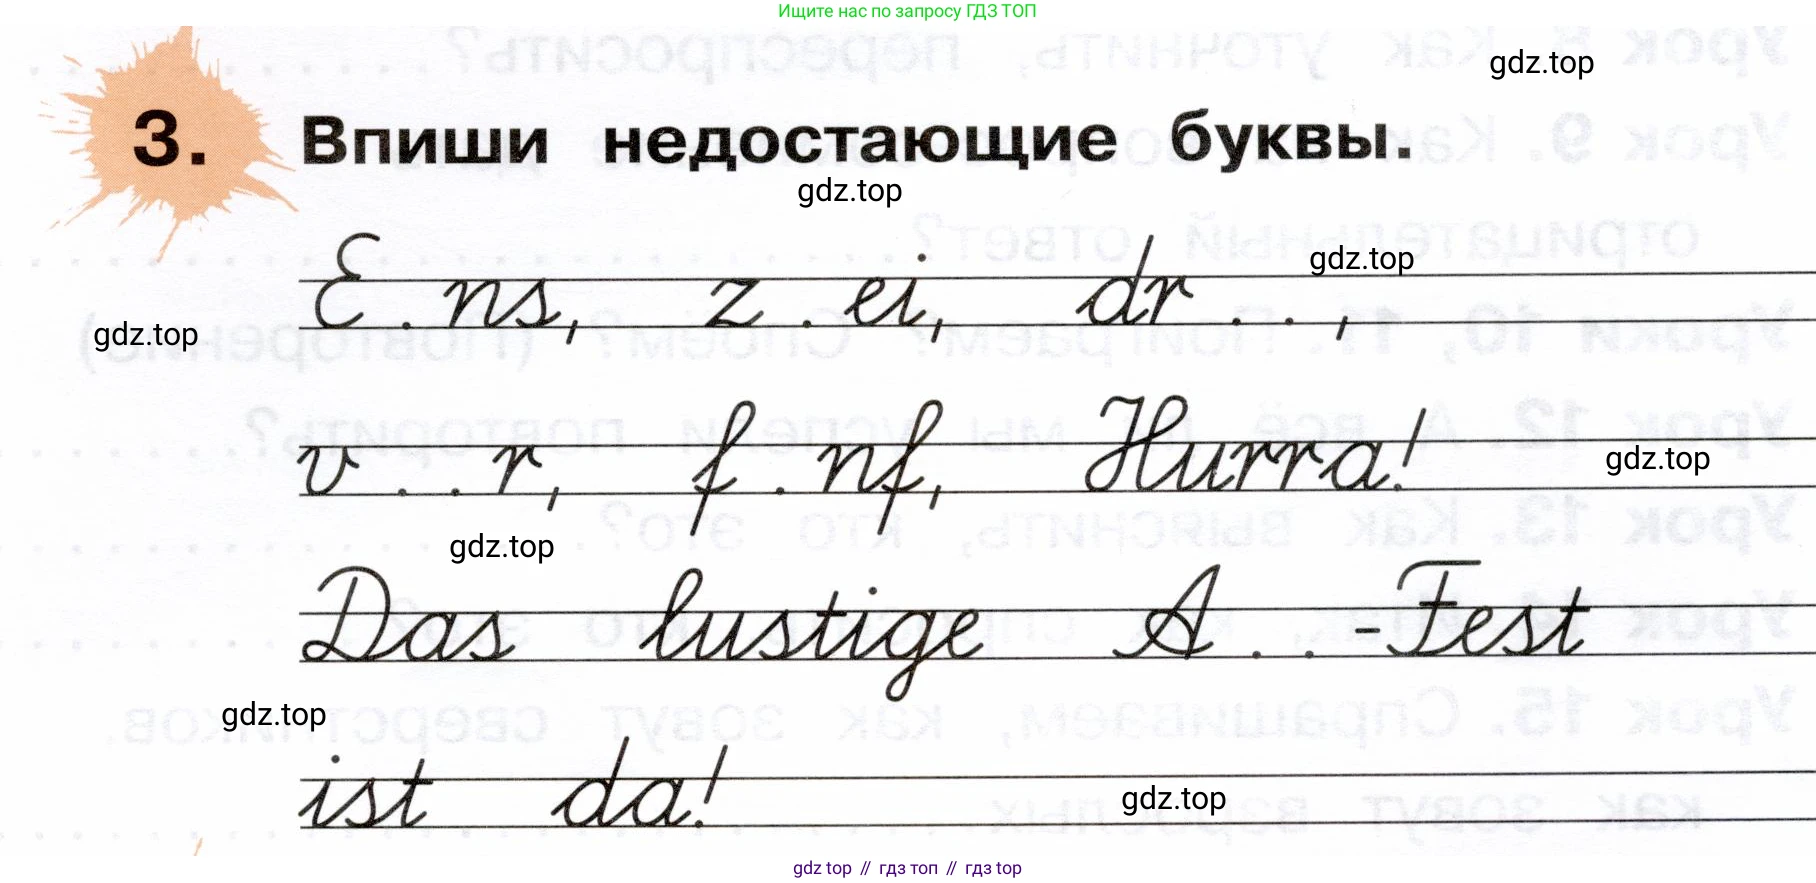 Ищите нас по запросу ГДЗ ТОП
gdz.top
3. Впиши недостающие буквы.
gdz.top
E . ns, z . ei, dr . . ,
gdz.top
gdz.top
v . . r, f . nf, Hurra!
gdz.top
gdz.top
Das lustige A . . -Fest
gdz.top
ist da!
gdz.top
gdz top // гдз топ // гдз top